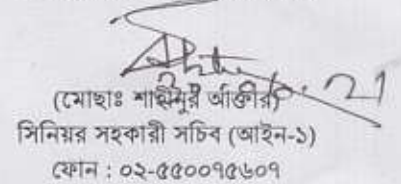 (মোছাঃ শাহীনুর আক্তার)
সিনিয়র সহকারী সচিব (আইন-১)
ফোন : ০২-৫৫০০৭৫৬০৭